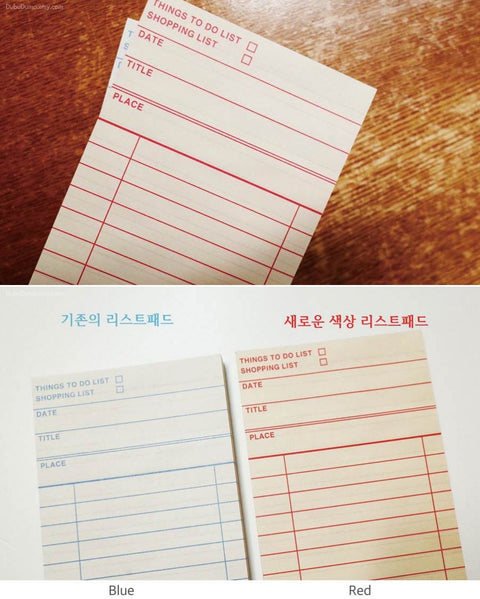 DubuDumo.etsy.com
THINGS TO DO LIST
SHOPPING LIST
DATE
TITLE
PLACE
T
S
기존의 리스트패드
새로운 색상 리스트패드
THINGS TO DO LIST
SHOPPING LIST
DATE
TITLE
PLACE
THINGS TO DO LIST
SHOPPING LIST
DATE
TITLE
PLACE
Blue
Red